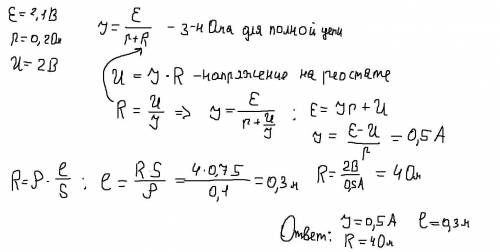 ε = 2,1 В
r = 0,2 Ом
U = 2 В
J = ε/(r+R) - З-н Ома для полной цепи
U = J · R - напряжение на реостате
R = U/J => J = ε/(r + U/J) ; ε = Jr + U
J = (ε - U)/r = 0,5 А
R = ρ · l/S ; l = RS/ρ = 4·0,75/0,1 = 0,3 м
R = 2В/0,5А = 4 Ом
Ответ: J = 0,5 А l = 0,3 м
R = 4 Ом